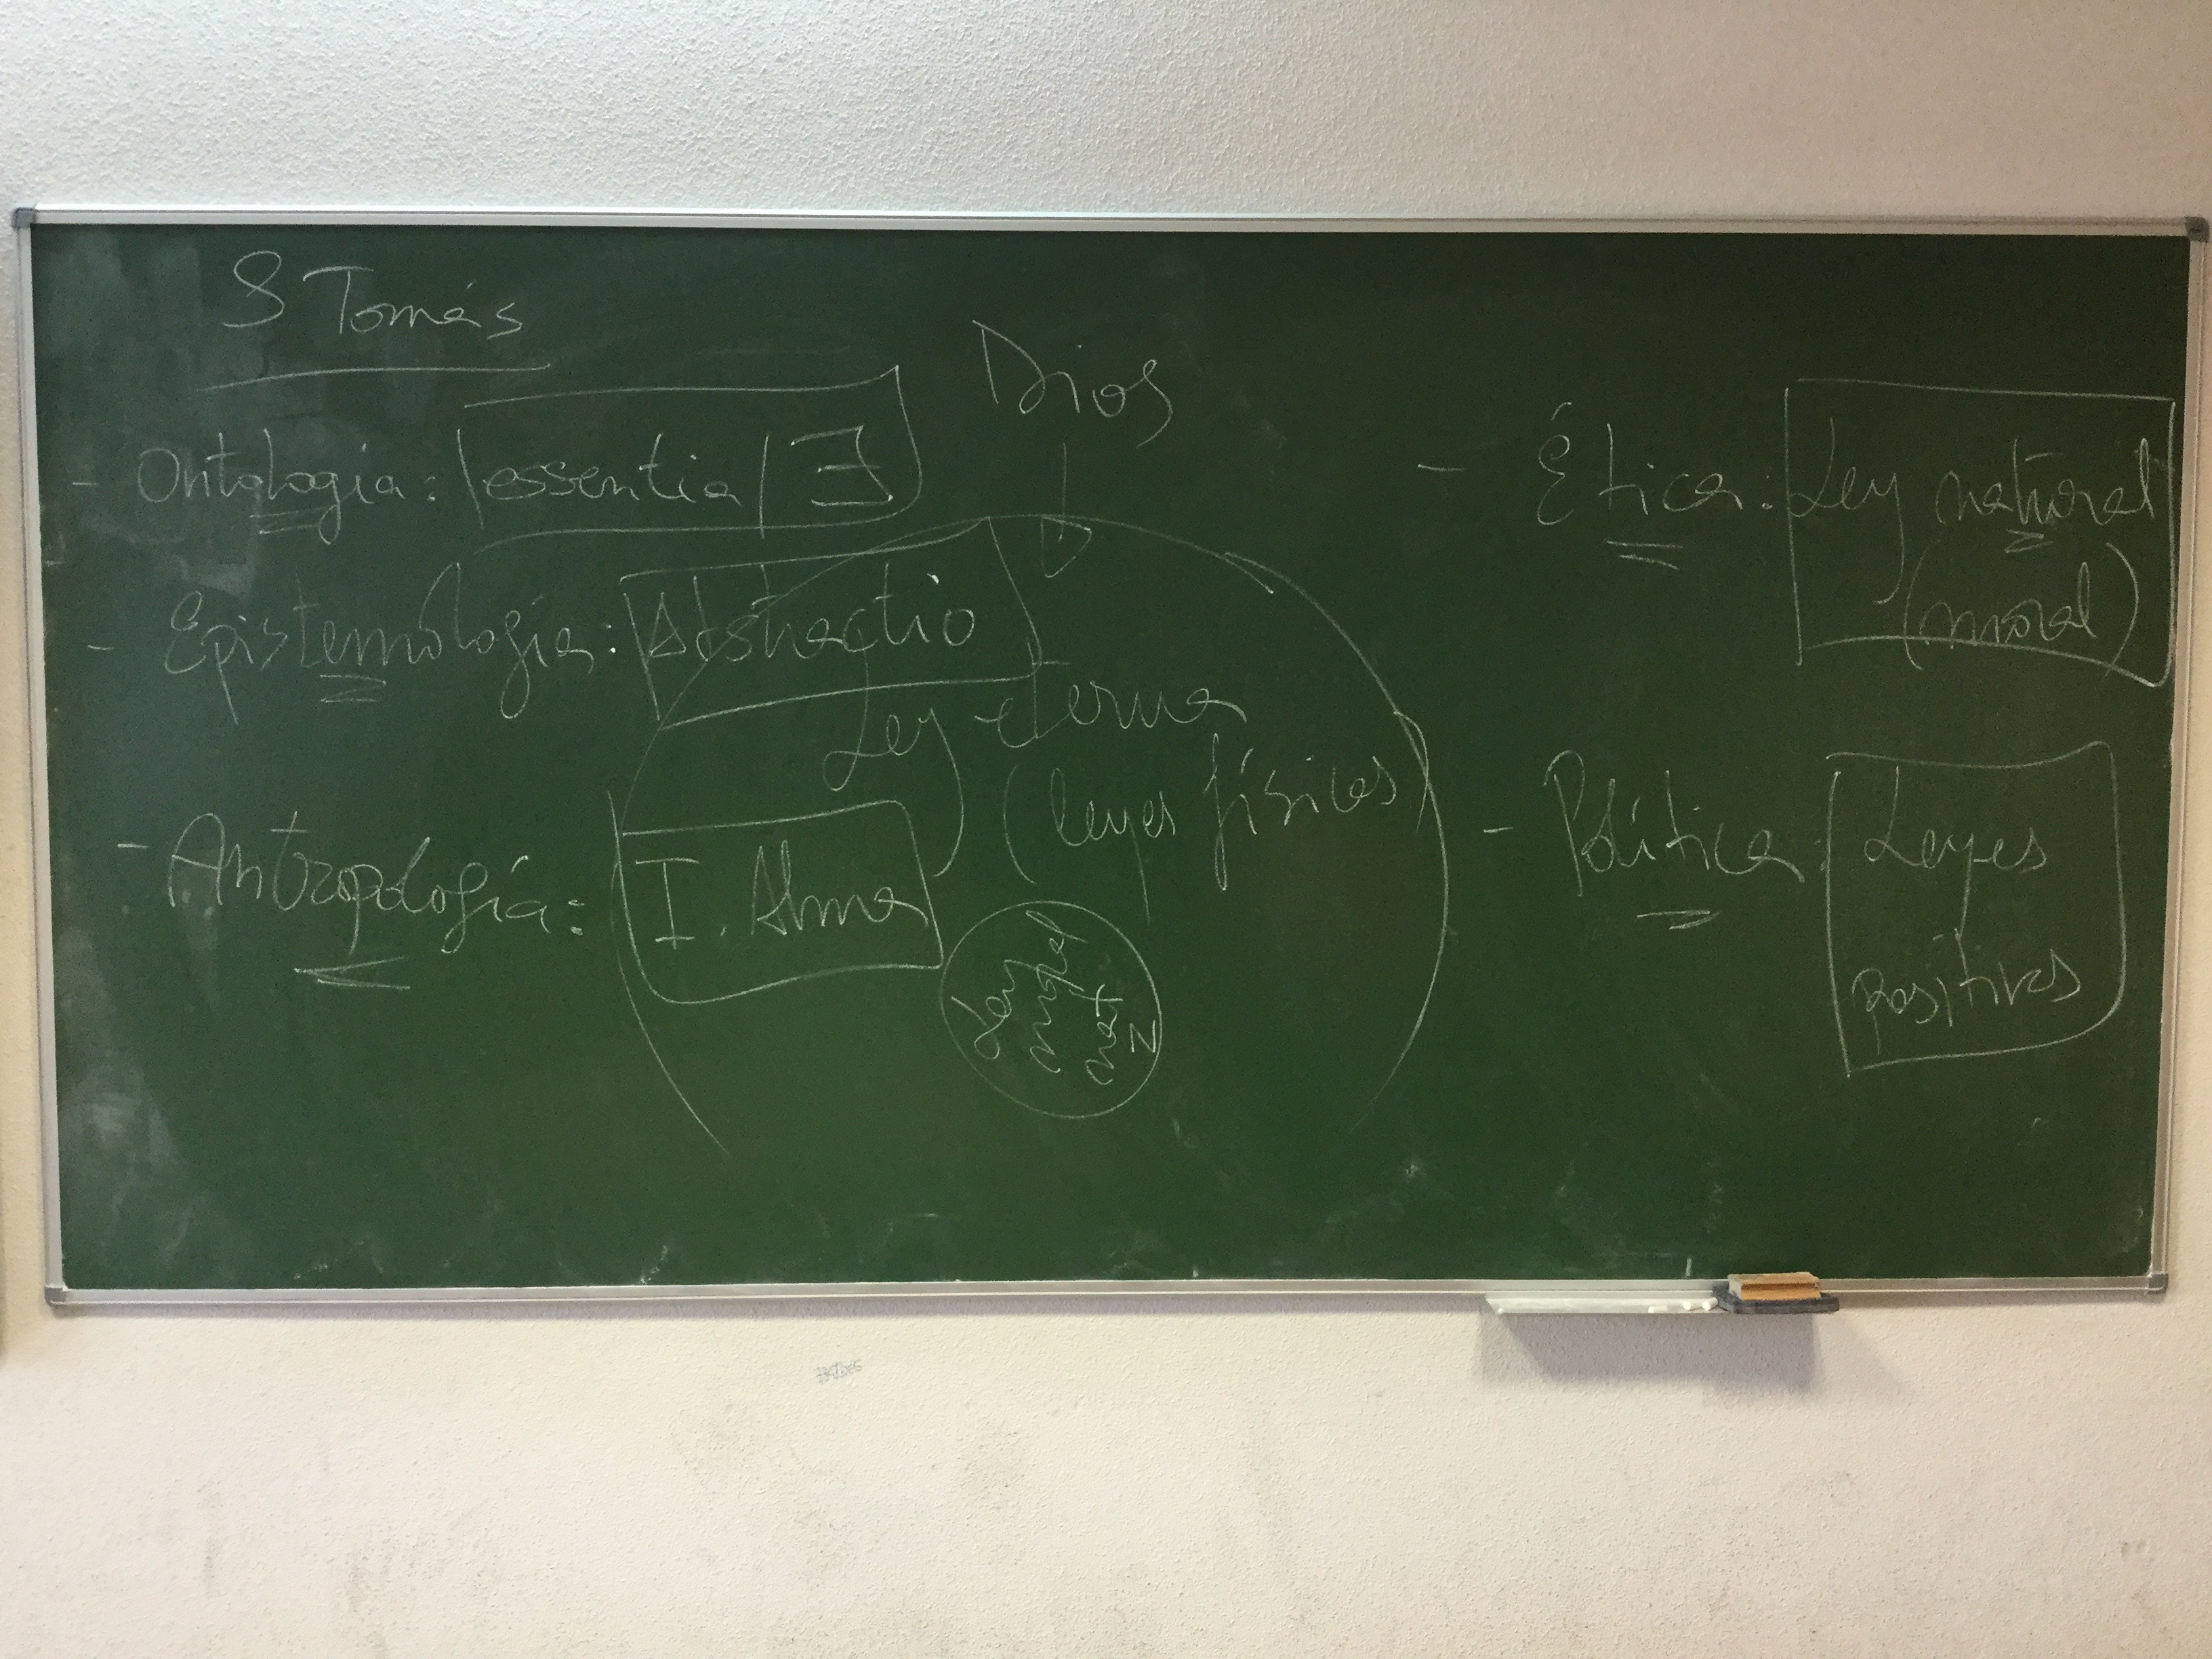 S Tomás
- Ontología: essentia | ∃
- Epistemología: Abstractio
- Antropología: I. Alma
Dios
Ley eterna
(leyes físicas)
Ley
moral
nat
- Ética: Ley natural
(moral)
- Política: Leyes
positivas